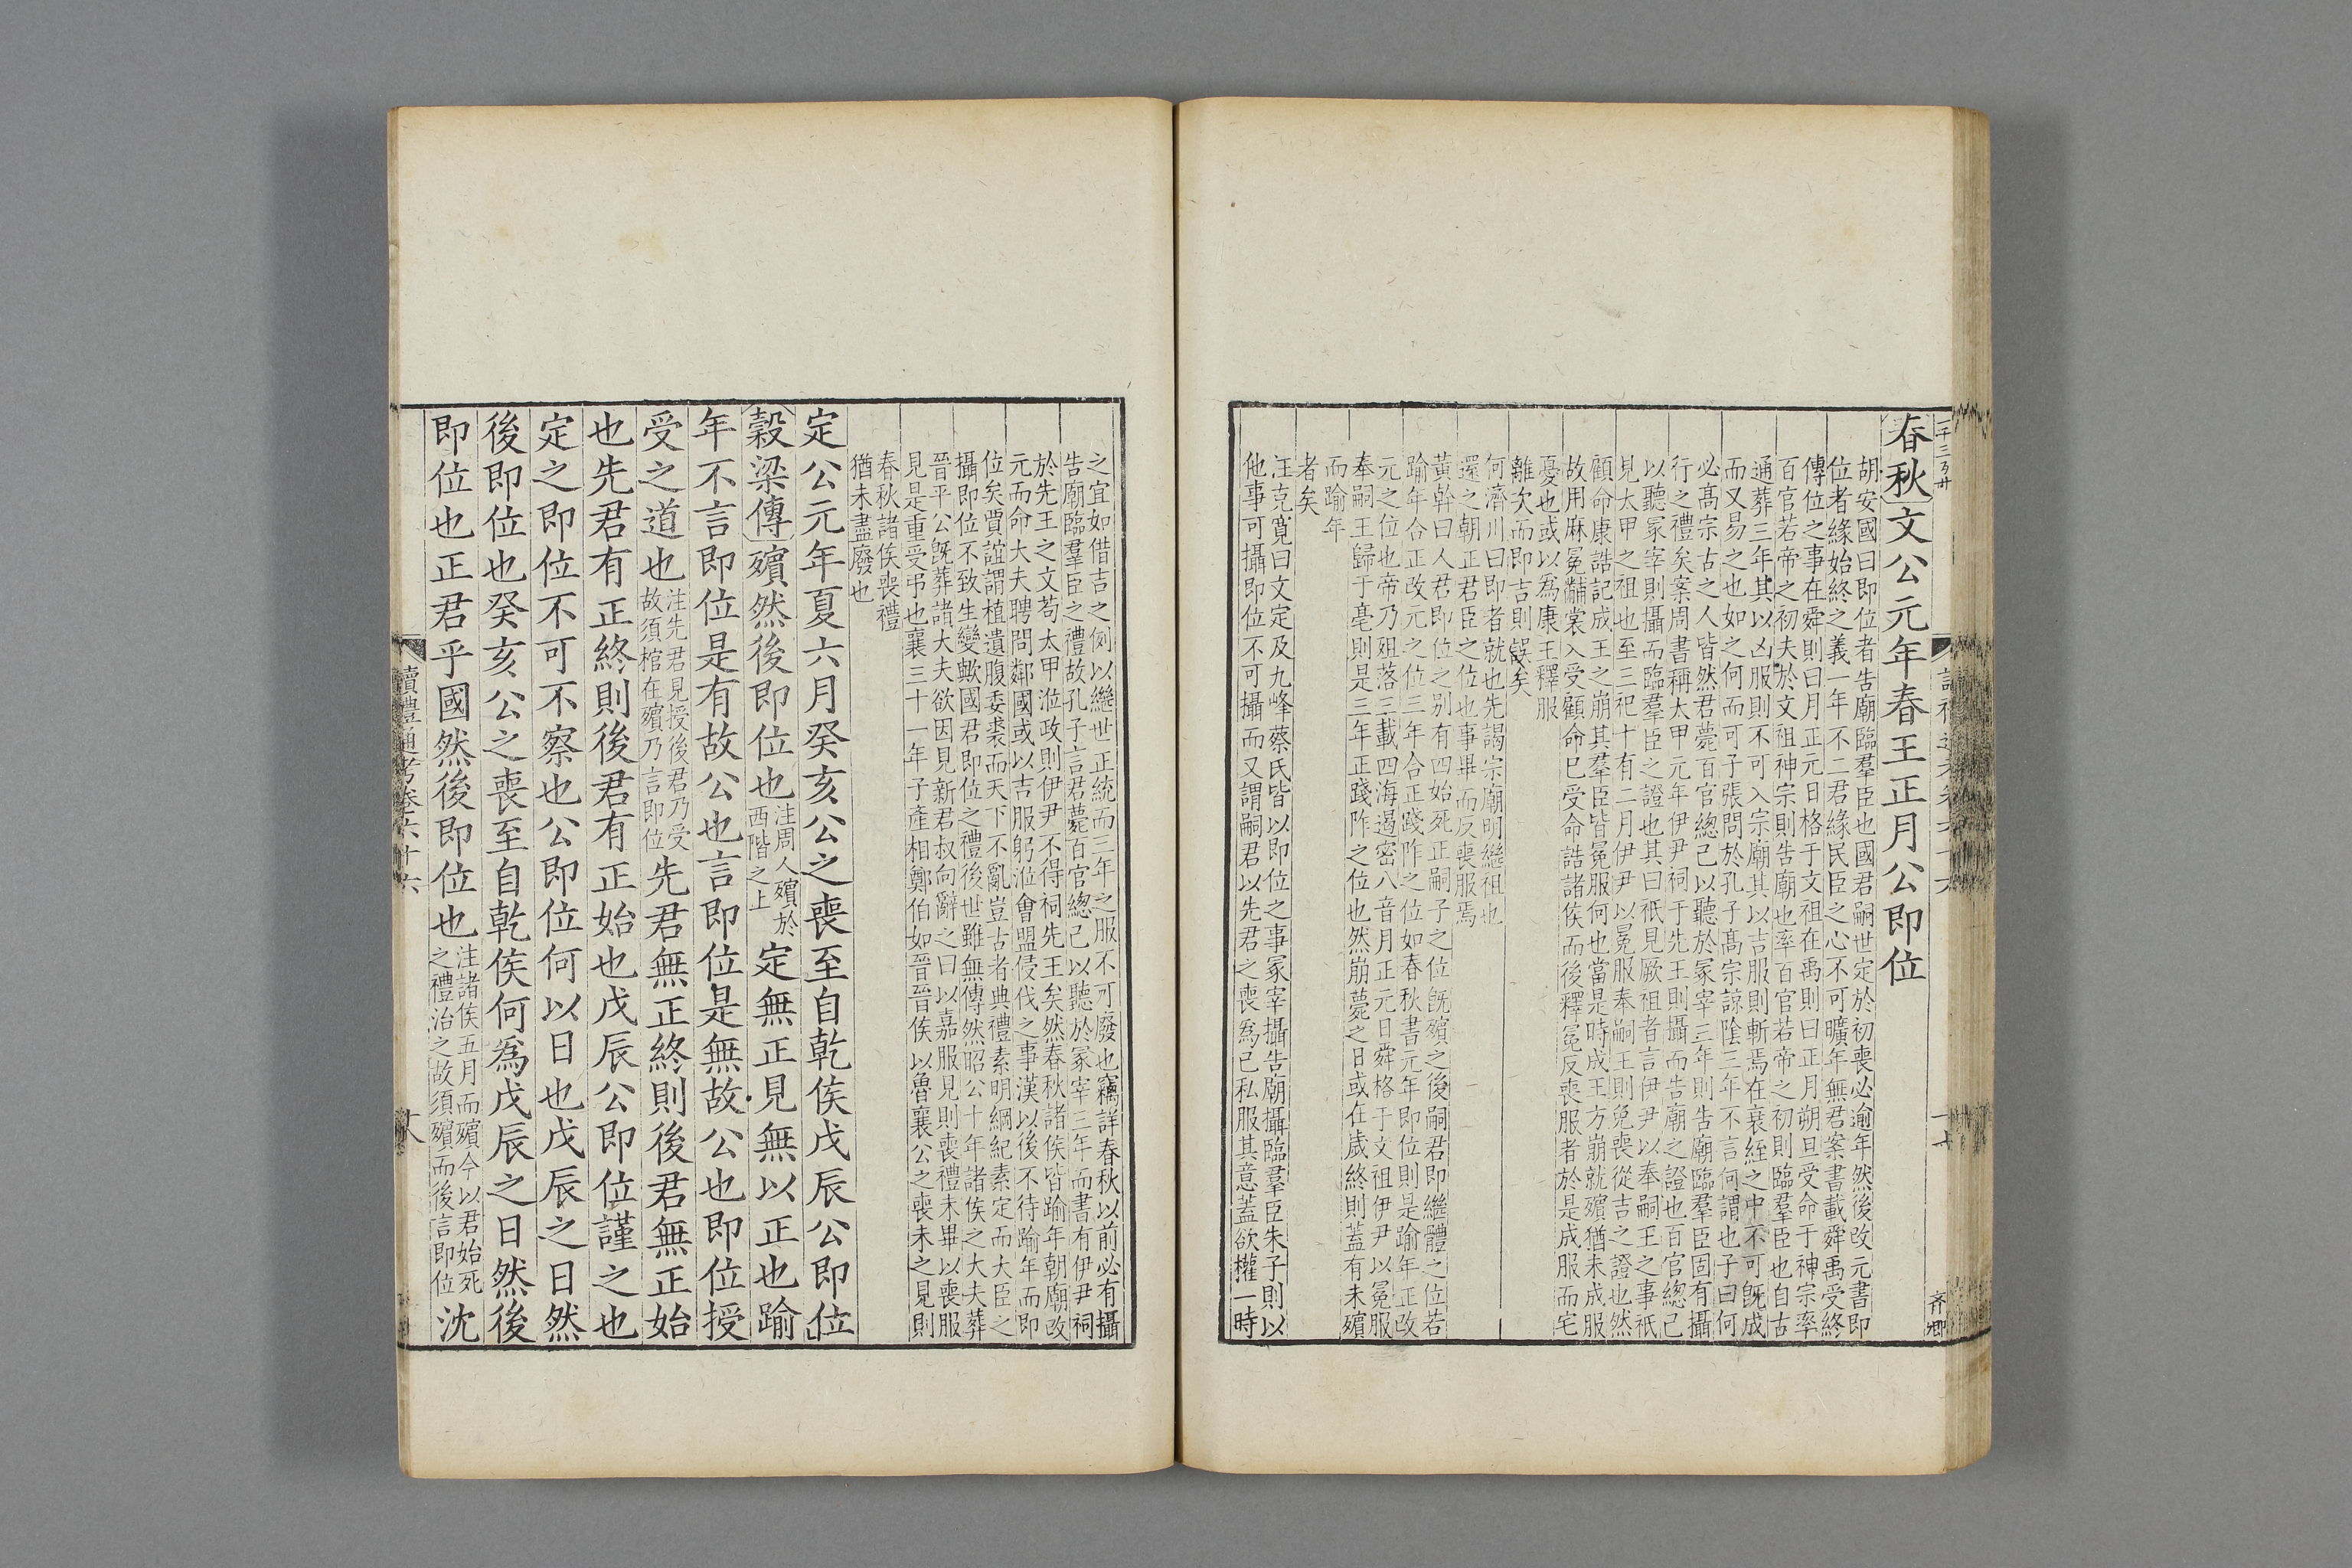 春秋文公元年春王正月公即位
胡安國曰即位者告廟臨羣臣也國君嗣世定於初喪必逾年然後改元書即
位者緣始終之義一年不二君緣民臣之心不可曠年無君案書載舜禹受終
傳位之事在舜則曰月正元日格于文祖在禹則曰正月朔旦受命于神宗率
百官若帝之初夫於文祖神宗則告廟也率百官若帝之初則臨羣臣也自古
通葬三年其以凶服則不可入宗廟其以吉服則斬焉在衰絰之中不可既成
而又易之也如之何而可子張問於孔子高宗諒陰三年不言何謂也子曰何
必高宗古之人皆然君薨百官總己以聽於冢宰三年則告廟臨羣臣固有攝
行之禮矣案周書稱太甲元年伊尹祠于先王則攝而告廟之證也百官總己
以聽冢宰則攝而臨羣臣之證也其曰祇見厥祖者言伊尹以奉嗣王之事祇
見太甲之祖也至三祀十有二月伊尹以冕服奉嗣王則免喪從吉之證也然
顧命康誥記成王之崩其羣臣皆冕服何也當是時成王方崩就殯猶未成服
故用麻冕黼裳入受顧命已受命誥諸侯而後釋冕反喪服者於是成服而宅
憂也或以為康王釋服
離次而即吉則誤矣
何濟川曰即者就也先謁宗廟明繼祖也
還之朝正君臣之位也事畢而反喪服焉
黃幹曰人君即位之別有四始死正嗣子之位既殯之後嗣君即繼體之位若
踰年合正改元之位三年合正踐阼之位如春秋書元年即位則是踰年正改
元之位也帝乃殂落三載四海遏密八音月正元日舜格于文祖伊尹以冕服
奉嗣王歸于亳則是三年正踐阼之位也然崩薨之日或在歲終則蓋有未殯
而踰年
者矣
汪克寬曰文定及九峰蔡氏皆以即位之事冢宰攝告廟攝臨羣臣朱子則以
他事可攝即位不可攝而又謂嗣君以先君之喪為己私服其意蓋欲權一時
之宜如借吉之例以繼世正統而三年之服不可廢也竊詳春秋以前必有攝
告廟臨羣臣之禮故孔子言君薨百官總己以聽於冢宰三年而書有伊尹祠
於先王之文苟太甲涖政則伊尹不得祠先王矣然春秋諸侯皆踰年朝廟改
元而命大夫聘問鄰國或以吉服躬涖會盟侵伐之事漢以後不待踰年而即
位矣賈誼謂植遺腹委裘而天下不亂豈古者典禮素明綱紀素定而大臣之
攝即位不致生變歟國君即位之禮後世雖無傳然昭公十年諸侯之大夫葬
晉平公既葬諸大夫欲因見新君叔向辭之曰以嘉服見則喪禮未畢以喪服
見是重受弔也襄三十一年子產相鄭伯如晉晉侯以魯襄公之喪未之見則
春秋諸侯喪禮
猶未盡廢也
定公元年夏六月癸亥公之喪至自乾侯戊辰公即位
穀梁傳殯然後即位也注周人殯於西階之上定無正見無以正也踰
年不言即位是有故公也言即位是無故公也即位授
受之道也注先君見授後君乃受故須棺在殯乃言即位先君無正終則後君無正始
也先君有正終則後君有正始也戊辰公即位謹之也
定之即位不可不察也公即位何以日也戊辰之日然
後即位也癸亥公之喪至自乾侯何為戊辰之日然後
即位也正君乎國然後即位也注諸侯五月而殯今以君始死之禮治之故須殯而後言即位沈
讀禮通考卷六十六
十八